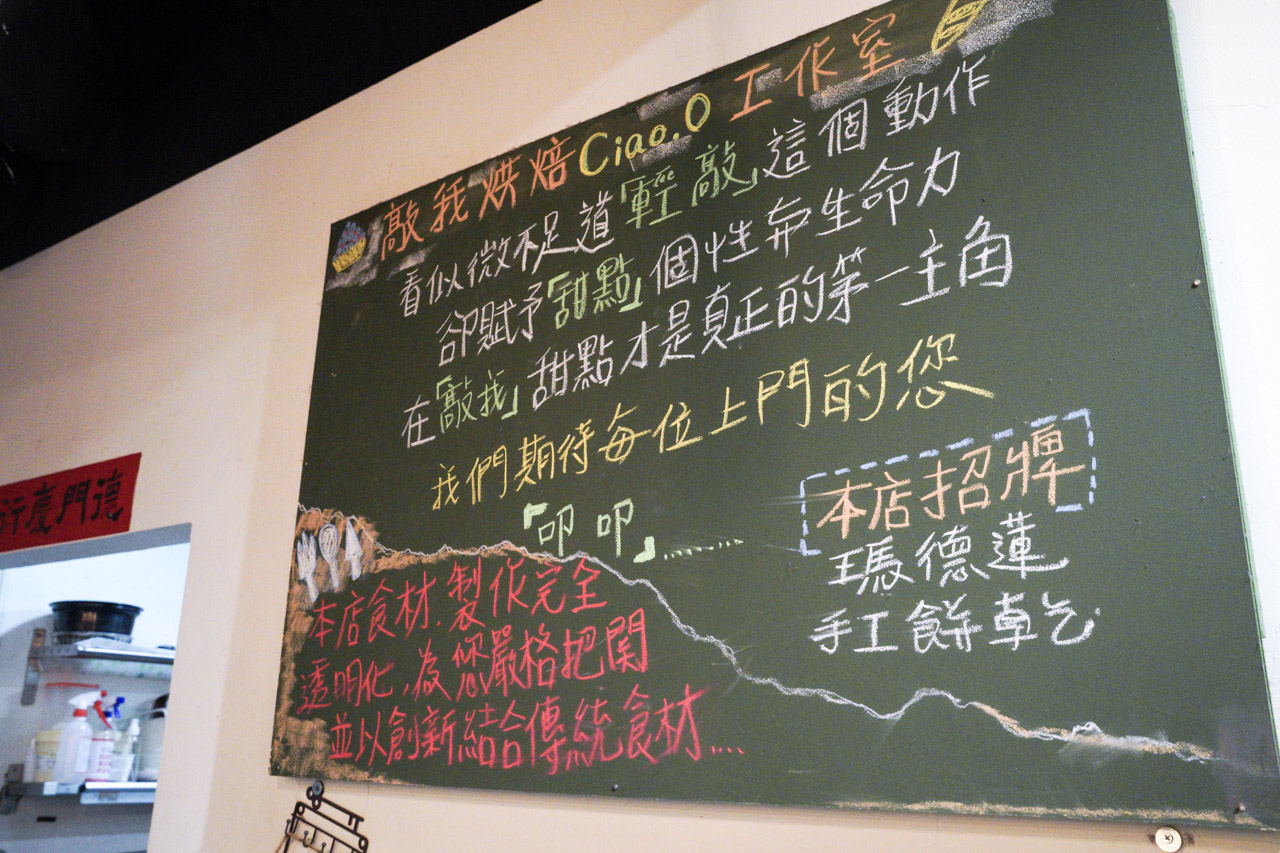 敲我烘焙Ciao.O工作室
看似微不足道「輕敲」這個動作
卻賦予「甜點」個性與生命力
在「敲我」甜點才是真正的第一主角
我們期待每位上門的您
「叩叩」........
本店招牌
瑪德蓮
手工餅乾
本店食材.製作完全
透明化,為您嚴格把關
並以創新結合傳統食材....
行慶門德